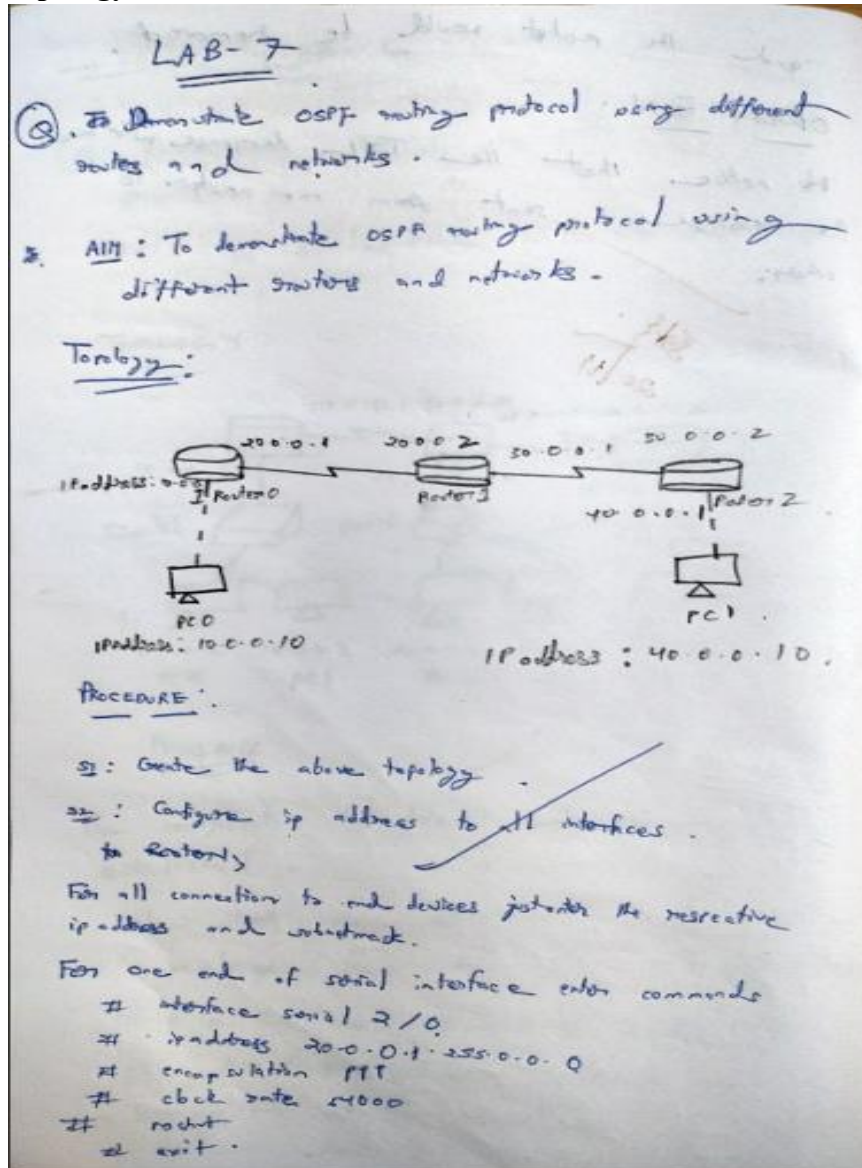 LAB-7
Q. Demonstrate OSPF routing protocol using different
routes and networks.
AIM: To demonstrate OSPF routing protocol using
different routers and networks.
Topology:
20.0.0.1 20.0.0.2 30.0.0.1 30.0.0.2
IP address:
Router0 Router1 Router2
40.0.0.1
PC0 PC1.
IP address: 10.0.0.10
IP address: 40.0.0.10.
PROCEDURE:
S1: Create the above topology.
S2: Configure ip address to all interfaces.
For all connection to end devices just enter the respective
ip address and subnetmask.
For one end of serial interface enter commands
# interface serial 2/0
# ip address 20.0.0.1 255.0.0.0
# encapsulation
# clock rate
# noshut
# exit.